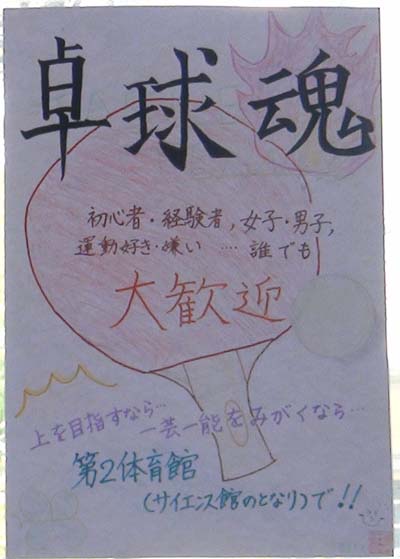 卓球魂
初心者・経験者,女子・男子,
運動好き・嫌い ‥‥ 誰でも
大歓迎
上を目指すなら… 一芸一能をみがくなら…
第2体育館
(サイエンス館のとなり)で!!